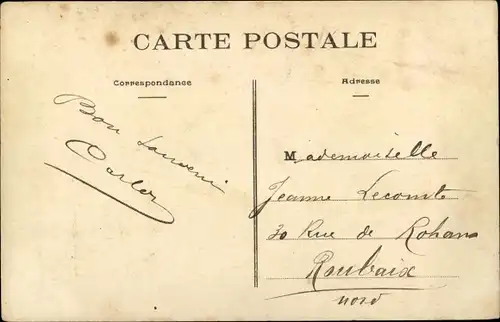 CARTE POSTALE
Correspondance
Adresse
Bon Souvenir
Carlos
Mademoiselle
Jeanne Lecomte
30 Rue de Rohan
Roubaix
Nord